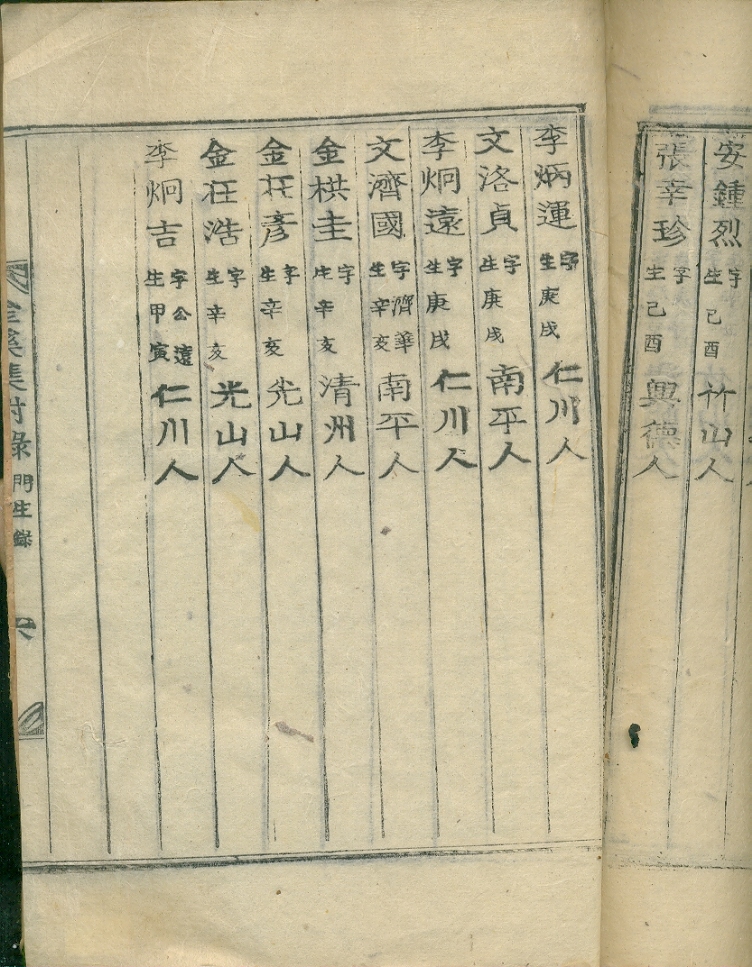 安鍾烈 字 生己酉 竹山人
張幸珍 字 生己酉 興德人
李炳運 字 生庚戌 仁川人
文洛貞 字 生庚戌 南平人
李炯遠 字 生庚戌 仁川人
文濟國 字濟華 生辛亥 南平人
金栱圭 字 生辛亥 清州人
金在彥 字 生辛亥 光山人
金在浩 字 生辛亥 光山人
李炯吉 字公遠 生甲寅 仁川人
溪集附錄 門生錄 六